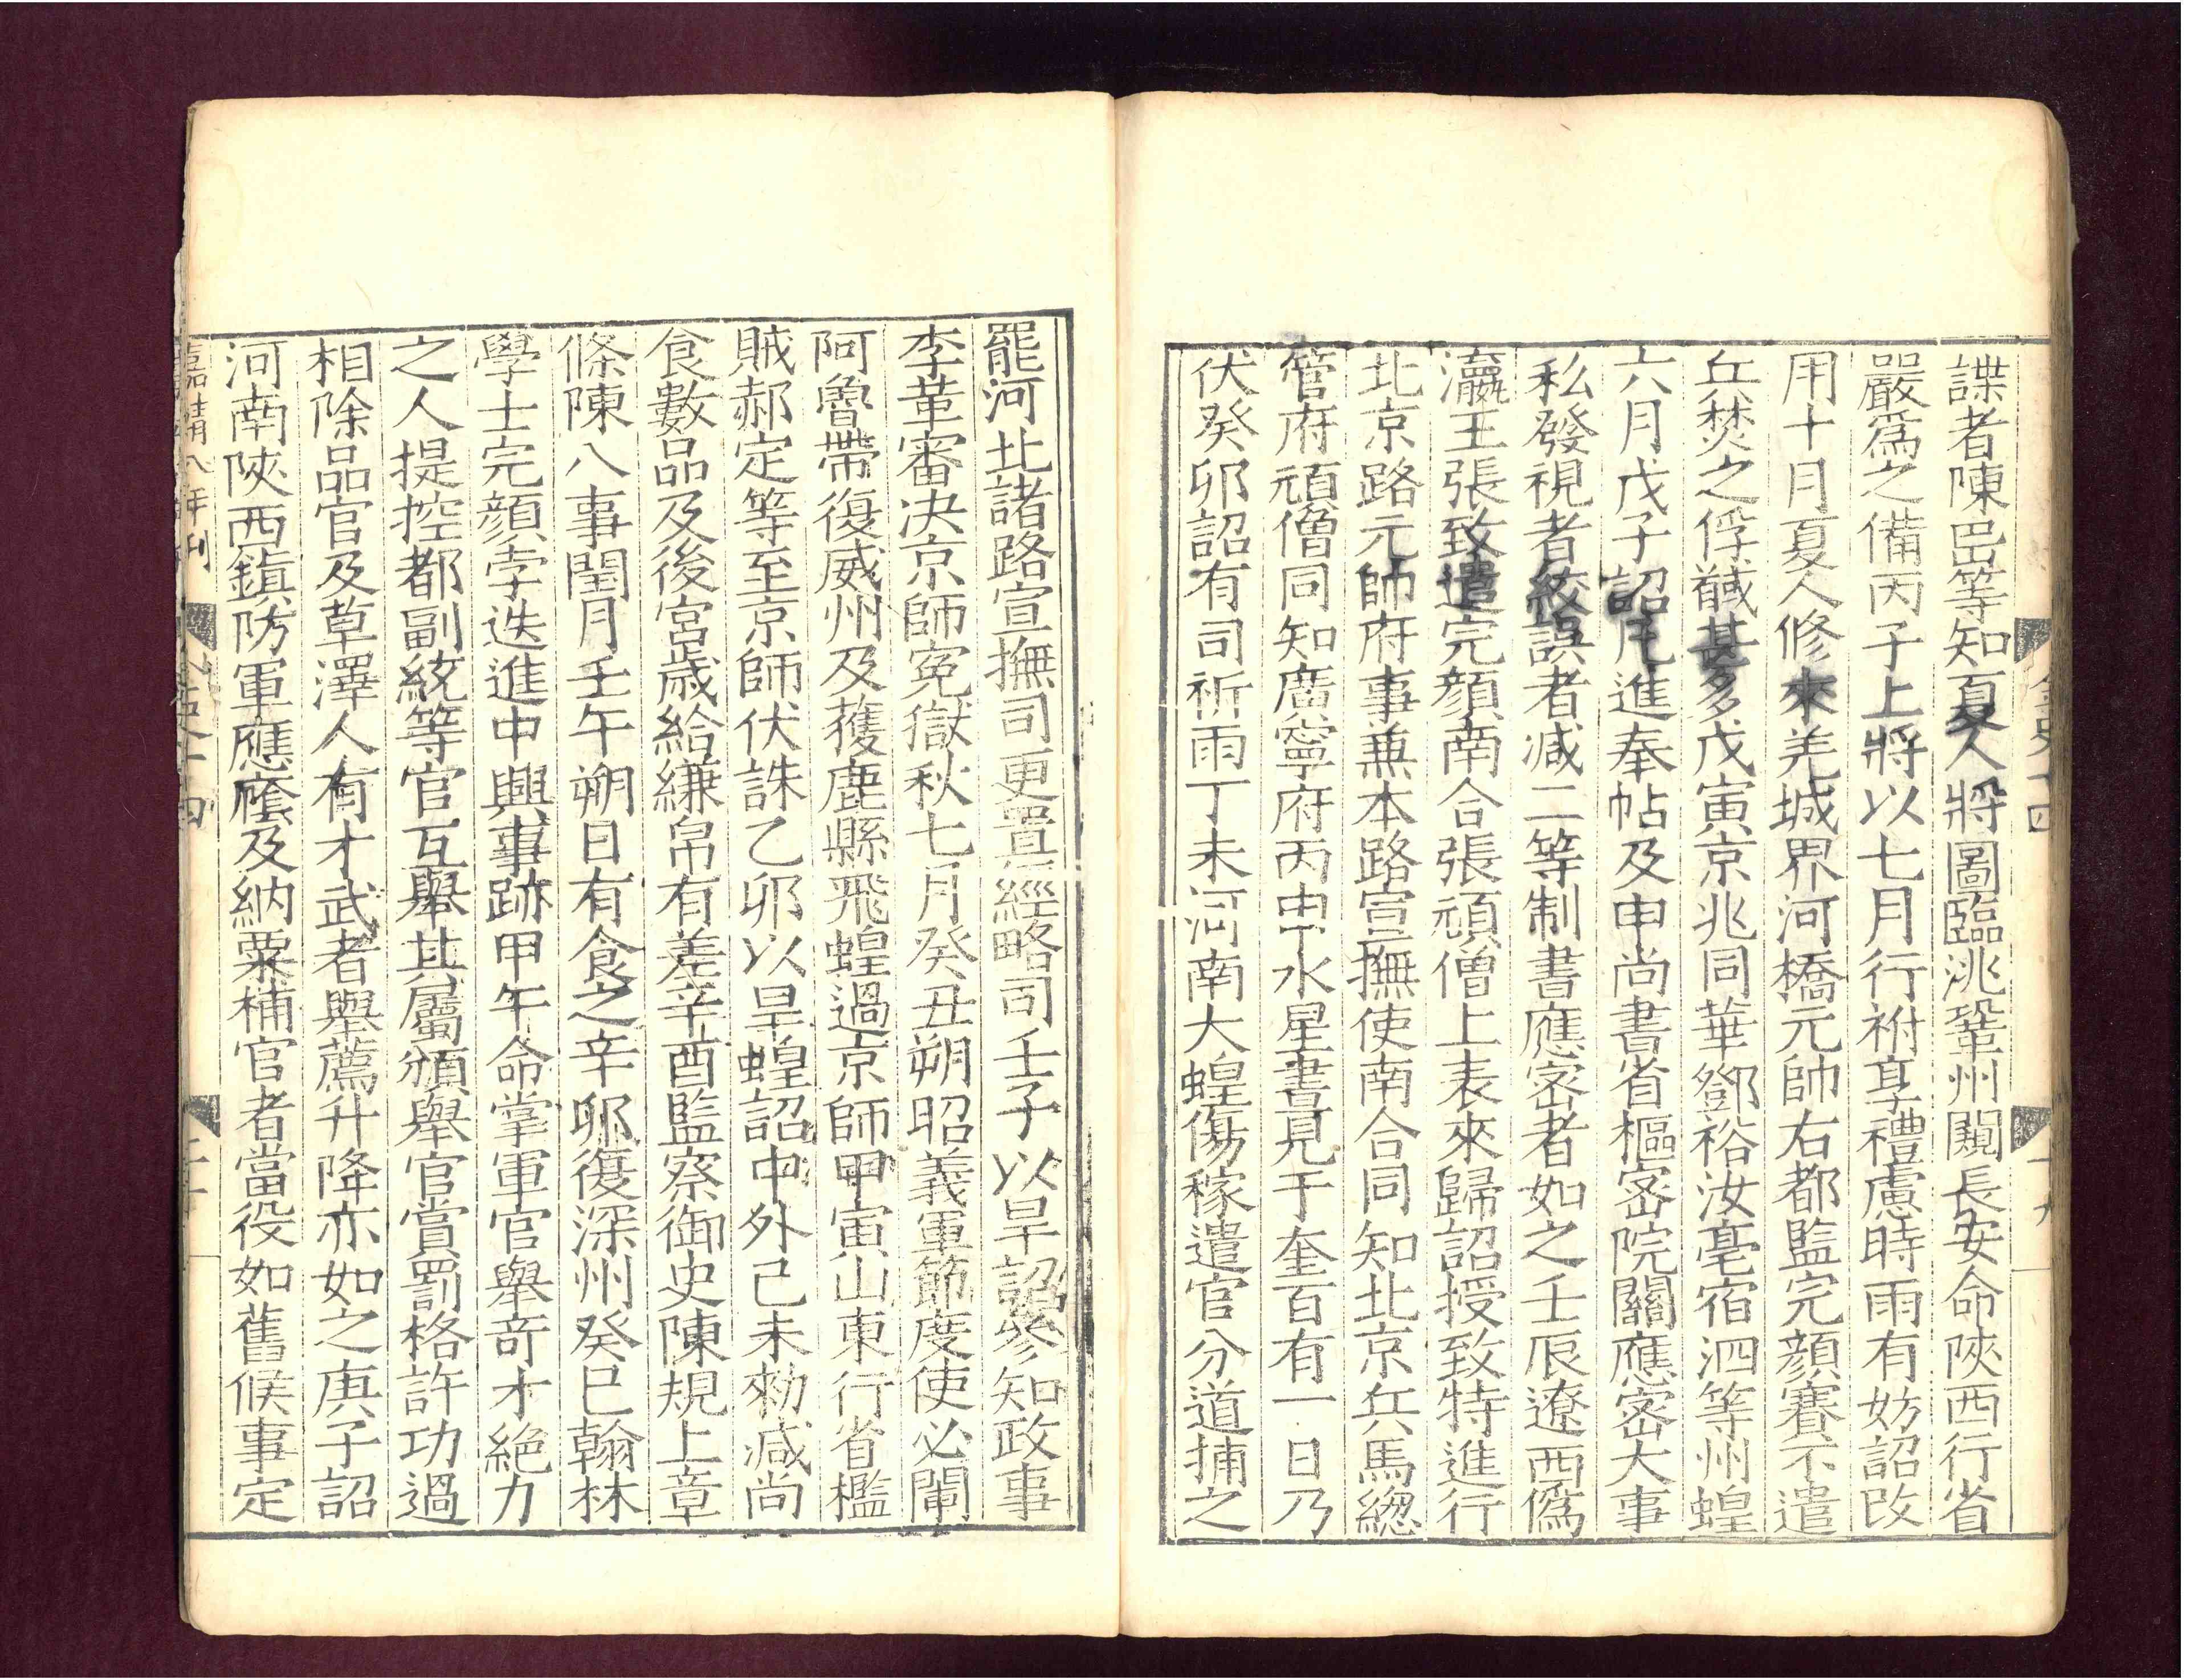 金史十四
十九
諜者陳𡵆等知夏人將圖臨洮鞏州闚長安命陝西行省
嚴爲之備丙子上將以七月行祔享禮慮時雨有妨詔改
用十月夏人修來羌城界河橋元帥右都監完顏賽不遣
兵焚之俘馘甚多戊寅京兆同華鄧裕汝亳宿泗等州蝗
六月戊子詔凡進奉帖及申尚書省樞密院關應密大事
私發視者絞誤者減二等制書應密者如之壬辰遼西僞
瀛王張致遣完顏南合張頑僧上表來歸詔授致特進行
北京路元帥府事兼本路宣撫使南合同知北京兵馬總
管府頑僧同知廣寧府丙申水星晝見于奎百有一日乃
伏癸卯詔有司祈雨丁未河南大蝗傷稼遣官分道捕之
罷河北諸路宣撫司更置經略司壬子以旱詔參知政事
李革審決京師冤獄秋七月癸丑朔昭義軍節度使必蘭
阿魯帶復威州及獲鹿縣飛蝗過京師甲寅山東行省檻
賊郝定等至京師伏誅乙卯以旱蝗詔中外己未勑減尚
食數品及後宮歲給縑帛有差辛酉監察御史陳規上章
條陳八事閏月壬午朔日有食之辛卯復深州癸巳翰林
學士完顏孛迭進中興事跡甲午命掌軍官舉奇才絕力
之人提控都副統等官互舉其屬頒舉官賞罰格許功過
相除品官及草澤人有才武者舉薦升降亦如之庚子詔
河南陝西鎮防軍應廕及納粟補官者當役如舊候事定
嘉靖八年刊
金史十四
二十